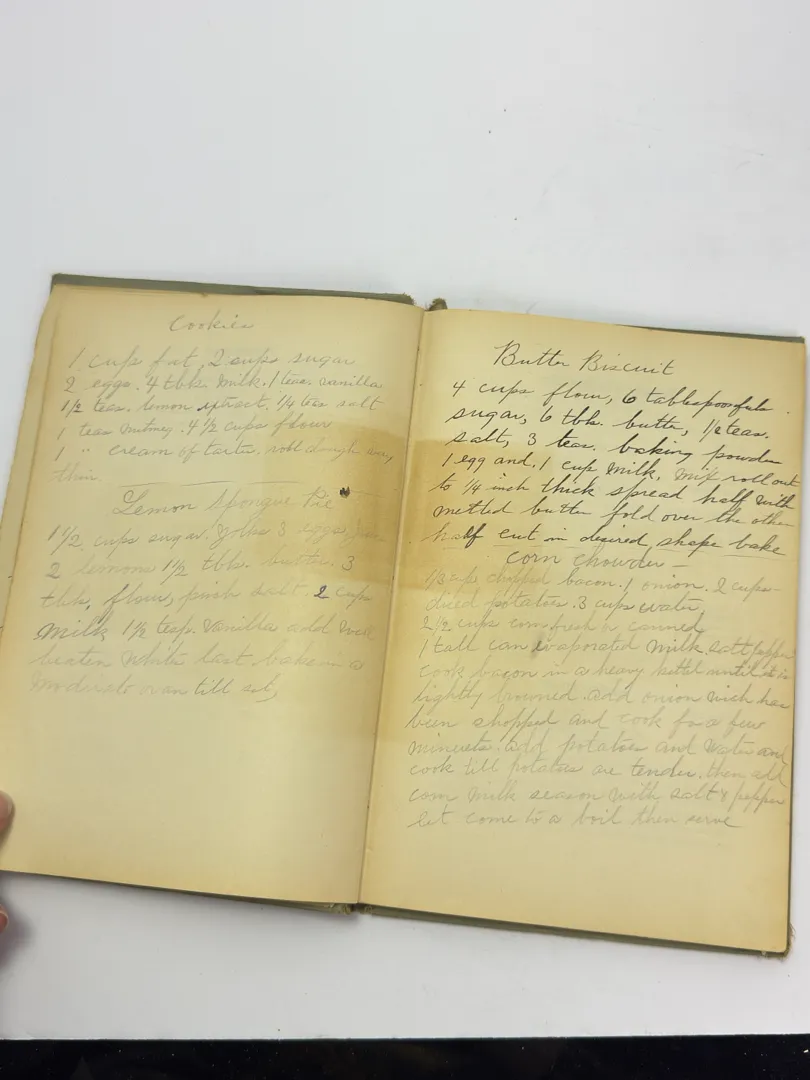 Cookies
1 cup fat, 2 cups sugar
2 eggs. 4 tbls. milk. 1 teas vanilla
1½ teas. lemon extract. ¼ teas salt
1 teas nutmeg. 4½ cups flour
1 " cream of tarter. roll dough
thin.
Lemon Spongue Pie
1½ cups sugar. yolks 3 eggs,
2 lemons 1½ tbls. butter. 3
tbls, flour, pinch salt. 2 cups
milk, 1½ tesp. vanilla add well
beaten white last bake in a
modirate ovan till set,
Butter Biscuit
4 cups flour, 6 tablespoonfuls.
sugar, 6 tbls. butter, ½ teas.
salt, 3 teas. baking powder
1 egg and, 1 cup milk, mix roll out
to ¼ inch thick spread half with
metled butter fold over the other
half cut in desired shape bake
Corn Chowder -
1/3 cup chopped bacon. 1 onion. 2 cups-
dired potatoes. 3 cups water,
2½ cups corn fresh or canned
1 tall can evaporated milk salt pepper
cook bacon in a heavy kettel until it is
lightly browned. add onion wich has
been shopped and cook for a few
minuets. add potatoes and water and
cook till potatoes are tender. then add
corn milk season with salt & pepper
let come to a boil then serve